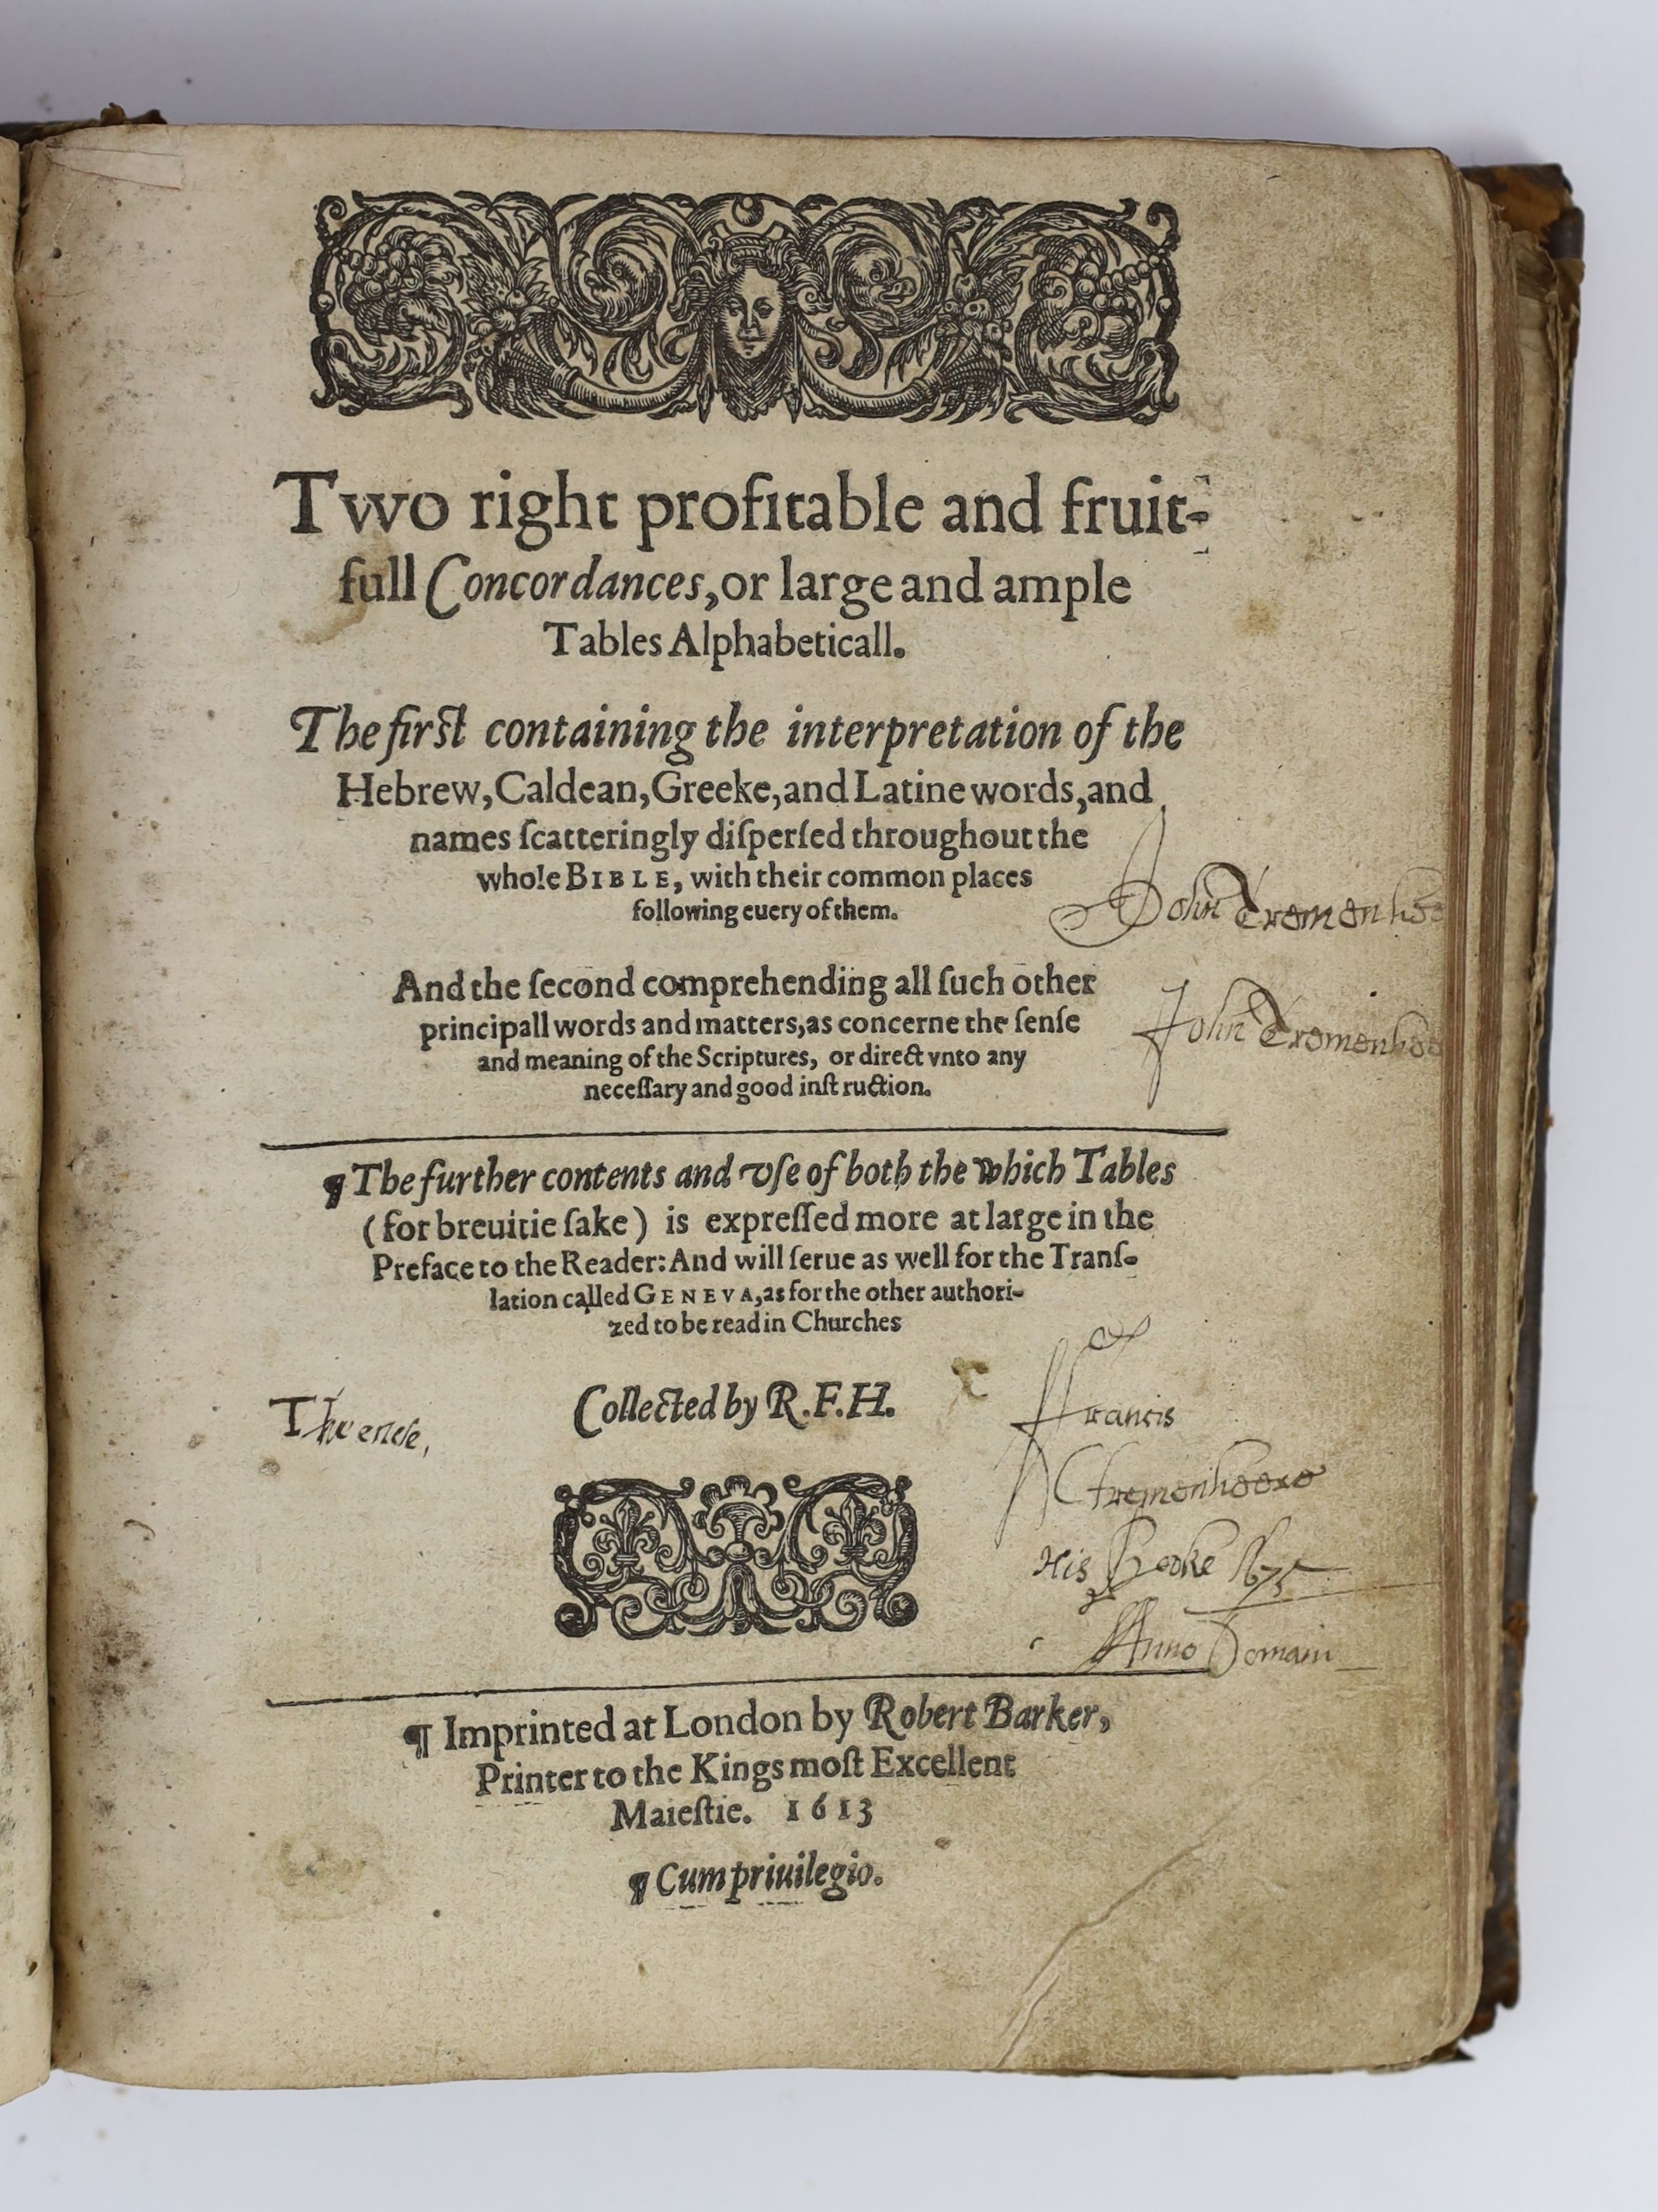 Two right profitable and fruit-
full Concordances, or large and ample
Tables Alphabeticall.
The first containing the interpretation of the
Hebrew, Caldean, Greeke, and Latine words, and
names ſcatteringly diſperſed throughout the
whole BIBLE, with their common places
following euery of them.
John Tremenhee
And the ſecond comprehending all ſuch other
principall words and matters, as concerne the ſenſe
and meaning of the Scriptures, or direct vnto any
neceſſary and good inſtruction.
John Tremenhee
¶ The further contents and vſe of both the which Tables
(for breuitie ſake) is expreſſed more at large in the
Preface to the Reader: And will ſerue as well for the Tranſ-
lation called GENEVA, as for the other authori-
zed to be read in Churches
Collected by R.F.H.
The ende,
Francis
Tremenheere
His Booke 1675
Anno Domini
¶ Imprinted at London by Robert Barker,
Printer to the Kings moſt Excellent
Maieſtie. 1613
¶ Cum priuilegio.